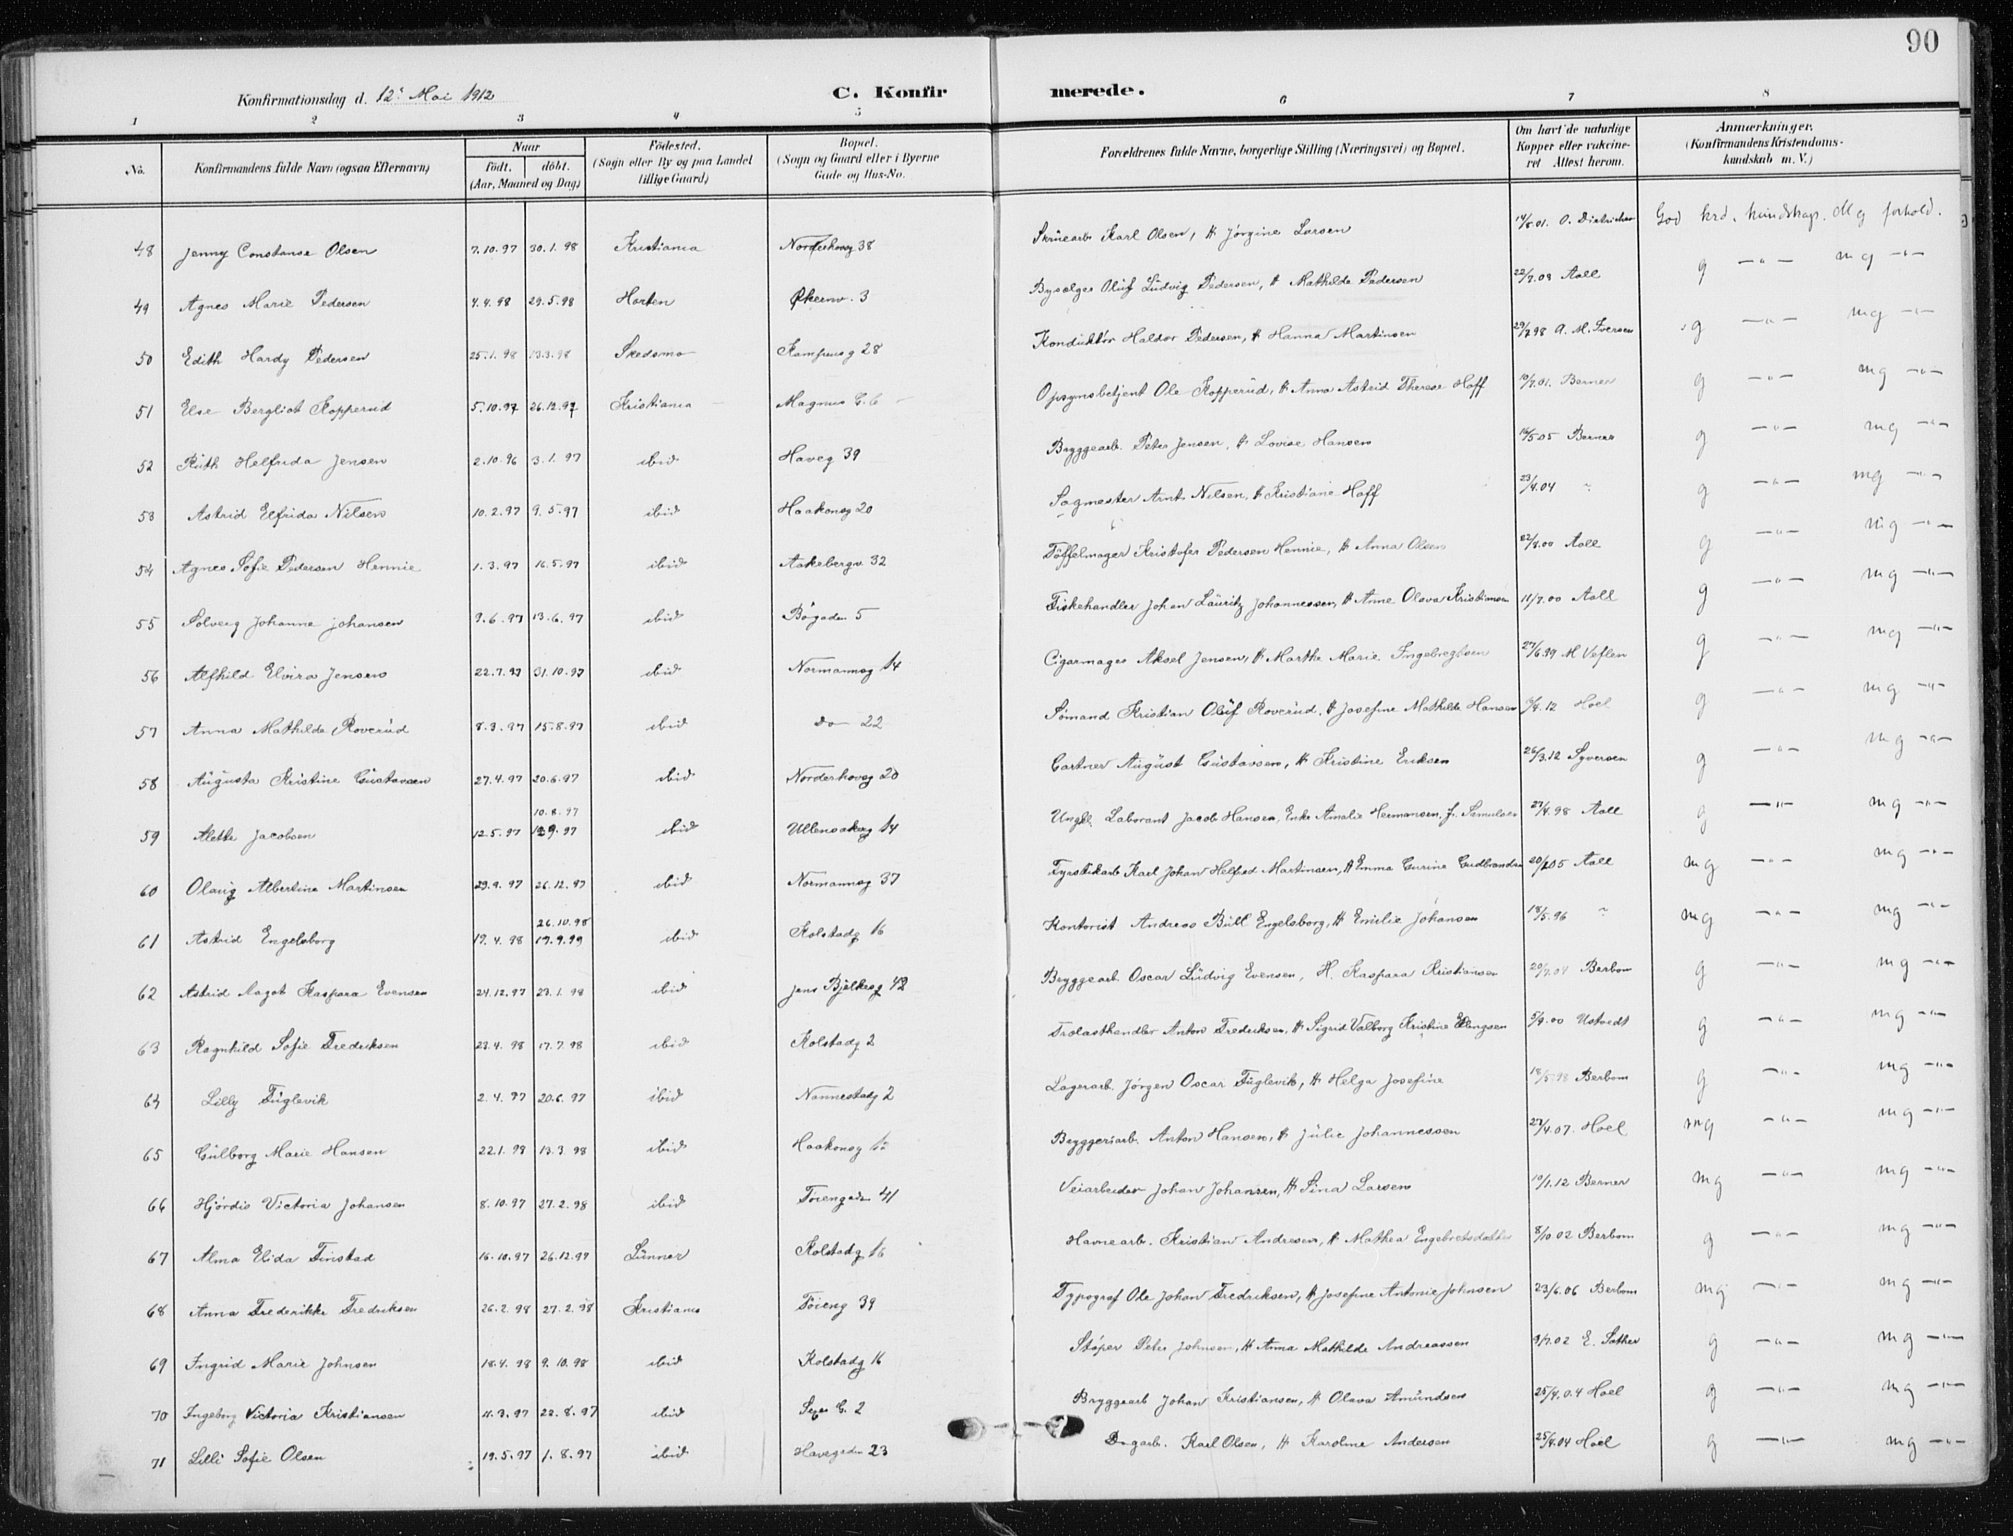 90
Konfirmationsdag d. 12' Mai 1912 C. Konfir merede.
1 2 3 4 5 6 7 8
No. Konfirmandens fulde Navn (ogsaa Efternavn) Naar født. døbt. (Aar, Maaned og Dag) Fødested. (Sogn eller By og paa Landet tillige Gaard) Bopæl. (Sogn og Gaard eller i Byerne Gade og Hus-No. Forældrenes fulde Navne, borgerlige Stilling (Næringsvei) og Bopæl. Om havt de naturlige Kopper eller vaccineret Attest herom. Anmærkninger. (Konfirmandens Kristendomskundskab m. V.)
48 Jenny Constanse Olsen 7.10.97 30.1.98 Kristiania Norderhovsg 38 Skruearb Karl Olsen, H Jørgine Larsen 14/8.01. O. God krd. kundskap. Mg forhold.
49 Agnes Marie Pedersen 4.4.98 29.5.98 Horten Økernv. 3 Bysælger Oluf Ludvig Pedersen, H Mathilde Pedersen 22/7.03 Aall g —"— mg —"—
50 Edith Hardy Pedersen 25.1.98 13.3.98 Skedsmo Kampensg 28 Konduktør Haldor Pedersen, H Hanna Martinsen 98 A. M. Iversen g —"— mg —"—
51 Else Bergliot Kopperud 5.10.97 26.12.97 Kristiania Magnus G. 6 Opsynsbetjent Ole Kopperud, H Anna Astrid Therese Hoff 10/7.01. Berner g —"— mg —"—
52 Ruth Helfrida Jensen 2.10.96 3.1.97 ibid Haveg 39 Bryggearb. Peter Jensen, H Lovise Hansen 16/5 05 Berner g —"— mg —"—
53 Astrid Elfrida Nilsen 10.2.97 9.5.97 ibid Haakonsg 20 Sagmester Arnt Nilsen, H Kristiane Hoff 23/4.04 " g —"— mg —"—
54 Agnes Sofie Pedersen Hennie 1.3.97 16.5.97 ibid Aakebergv 32 Tøffelmager Kristofer Pedersen Hennie, H Anna Olsen 22/8.00 Aall g —"— mg —"—
55 Solveig Johanne Johansen 9.6.97 13.6.97 ibid Bøgaden 5 Fiskehandler Johan Lauritz Johannessen, H Anne Olava Kristiansen 11/7.00 Aall g —"— mg —"—
56 Alfhild Elvira Jensen 22.7.97 31.10.97 ibid Normannsg 14 Cigarmager Aksel Jensen, H Marthe Marie Ingebregtsen 27/6.99 M Veflen g —"— mg —"—
57 Anna Mathilde Roverud 8.3.97 15.8.97 ibid do 22 Sømand Kristian Oluf Roverud, H Josefine Mathilde Hansen 12 Hoel g —"— mg —"—
58 Augusta Kristine Gustavsen 27.4.97 20.6.97 ibid Norderhovsg 20 Gartner August Gustavsen, H Kristine Eriksen 26/3.12 Syversen g —"— mg —"—
10.8.97
59 Alette Jacobsen 12.5.97 12.9.97 ibid Ullensakerg 14 Ungk. Laborant Jacob Hansen, Enke Amalie Hermansen, f. Samulsen 27/4.98 Aall g —"— mg —"—
60 Olaug Albertine Martinsen 29.9.97 26.12.97 ibid Normannsg 37 Fyrstikarb Karl Johan Helfred Martinsen, H Emma Gurine Gudbrandsen 05 Aall mg —"— mg —"—
26.10.98
61 Astrid Engelsborg 19.4.98 17.9.99 ibid Kolstadg 16 Kontorist Andreas Bull Engelsborg, H Emilie Johansen 18/5.96 " mg —"— mg —"—
62 Astrid Magot Kaspara Evensen 24.12.97 23.1.98 ibid Jens Bjelkesg 42 Bryggearb. Oscar Ludvig Evensen, H. Kaspara Kristiansen 20/7.04 Berbom g —"— mg —"—
63 Ragnhild Sofie Fredriksen 23.4.98 17.7.98 ibid Kolstadg 2 Trælasthandler Anton Fredriksen, H Sigrid Valborg Kristine Ellingsen 5/9.00 Ustvedt g —"— mg —"—
64 Lilly Fuglevik 2.4.97 20.6.97 ibid Nannestadg 2 Lagerarb. Jørgen Oscar Fuglevik, H Helga Josefine 18/5.98 Berbom g —"— mg —"—
65 Gulborg Marie Hansen 22.1.98 13.3.98 ibid Haakonsg Bryggeriarb. Anton Hansen, H Julie Johannessen 27/4.07. Hoel mg —"— mg —"—
66 Hjørdis Victoria Johansen 8.10.97 27.2.98 ibid Tøiengaden 41 Veiarbeider Johan Johansen, H Sina Larsen 10/1.12 Berner mg —"— mg —"—
67 Alma Elida Finstad 16.10.97 26.12.97 Lunner Kolstadg 16 Havnearb. Kristian Andresen, H Mathea Engebretsdatter 8/10 02 Berbom g —"— mg —"—
68 Anna Frederikke Fredriksen 26.2.98 27.2.98 Kristiania Tøieng 39 Typograf Ole Johan Fredriksen, H Josefine Antonie Johnsen 23/6.06 Berbom mg —"— mg —"—
69 Ingrid Marie Johnsen 18.4.98 9.10.98 ibid Kolstadg 16 Støper Peter Johnsen, H Anna Mathilde Andreassen 9/7.02 E. Sæther g —"— mg —"—
70 Ingeborg Victoria Kristiansen 11.3.97 22.8.97 ibid G. 2 Bryggearb Johan Kristiansen, H Olava Amundsen 25/4.04 Hoel g —"— mg —"—
71 Lilli Sofie Olsen 19.5.97 1.8.97 ibid Havegaden 23 Karl Olsen, H Karoline Andersen 25/4.04 Hoel g —"— mg —"—